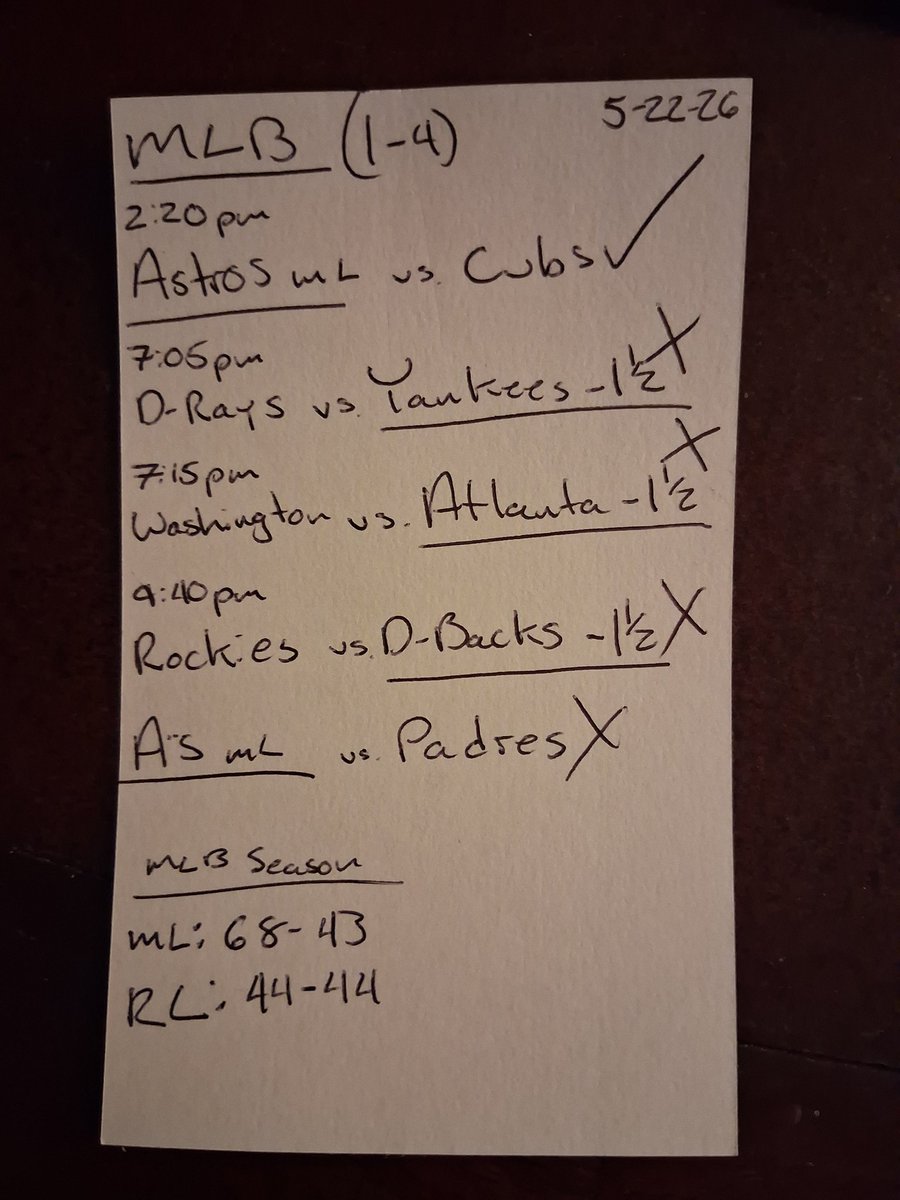 MLB (1-4) 5-22-26
2:20pm
Astros mL vs. Cubs ✓
7:05pm
D-Rays vs. Yankees -1½ X
7:15pm
Washington vs. Atlanta -1½ X
9:40pm
Rockies vs. D-Backs -1½ X
A's mL vs. Padres X
MLB Season
mL: 68-43
RL: 44-44